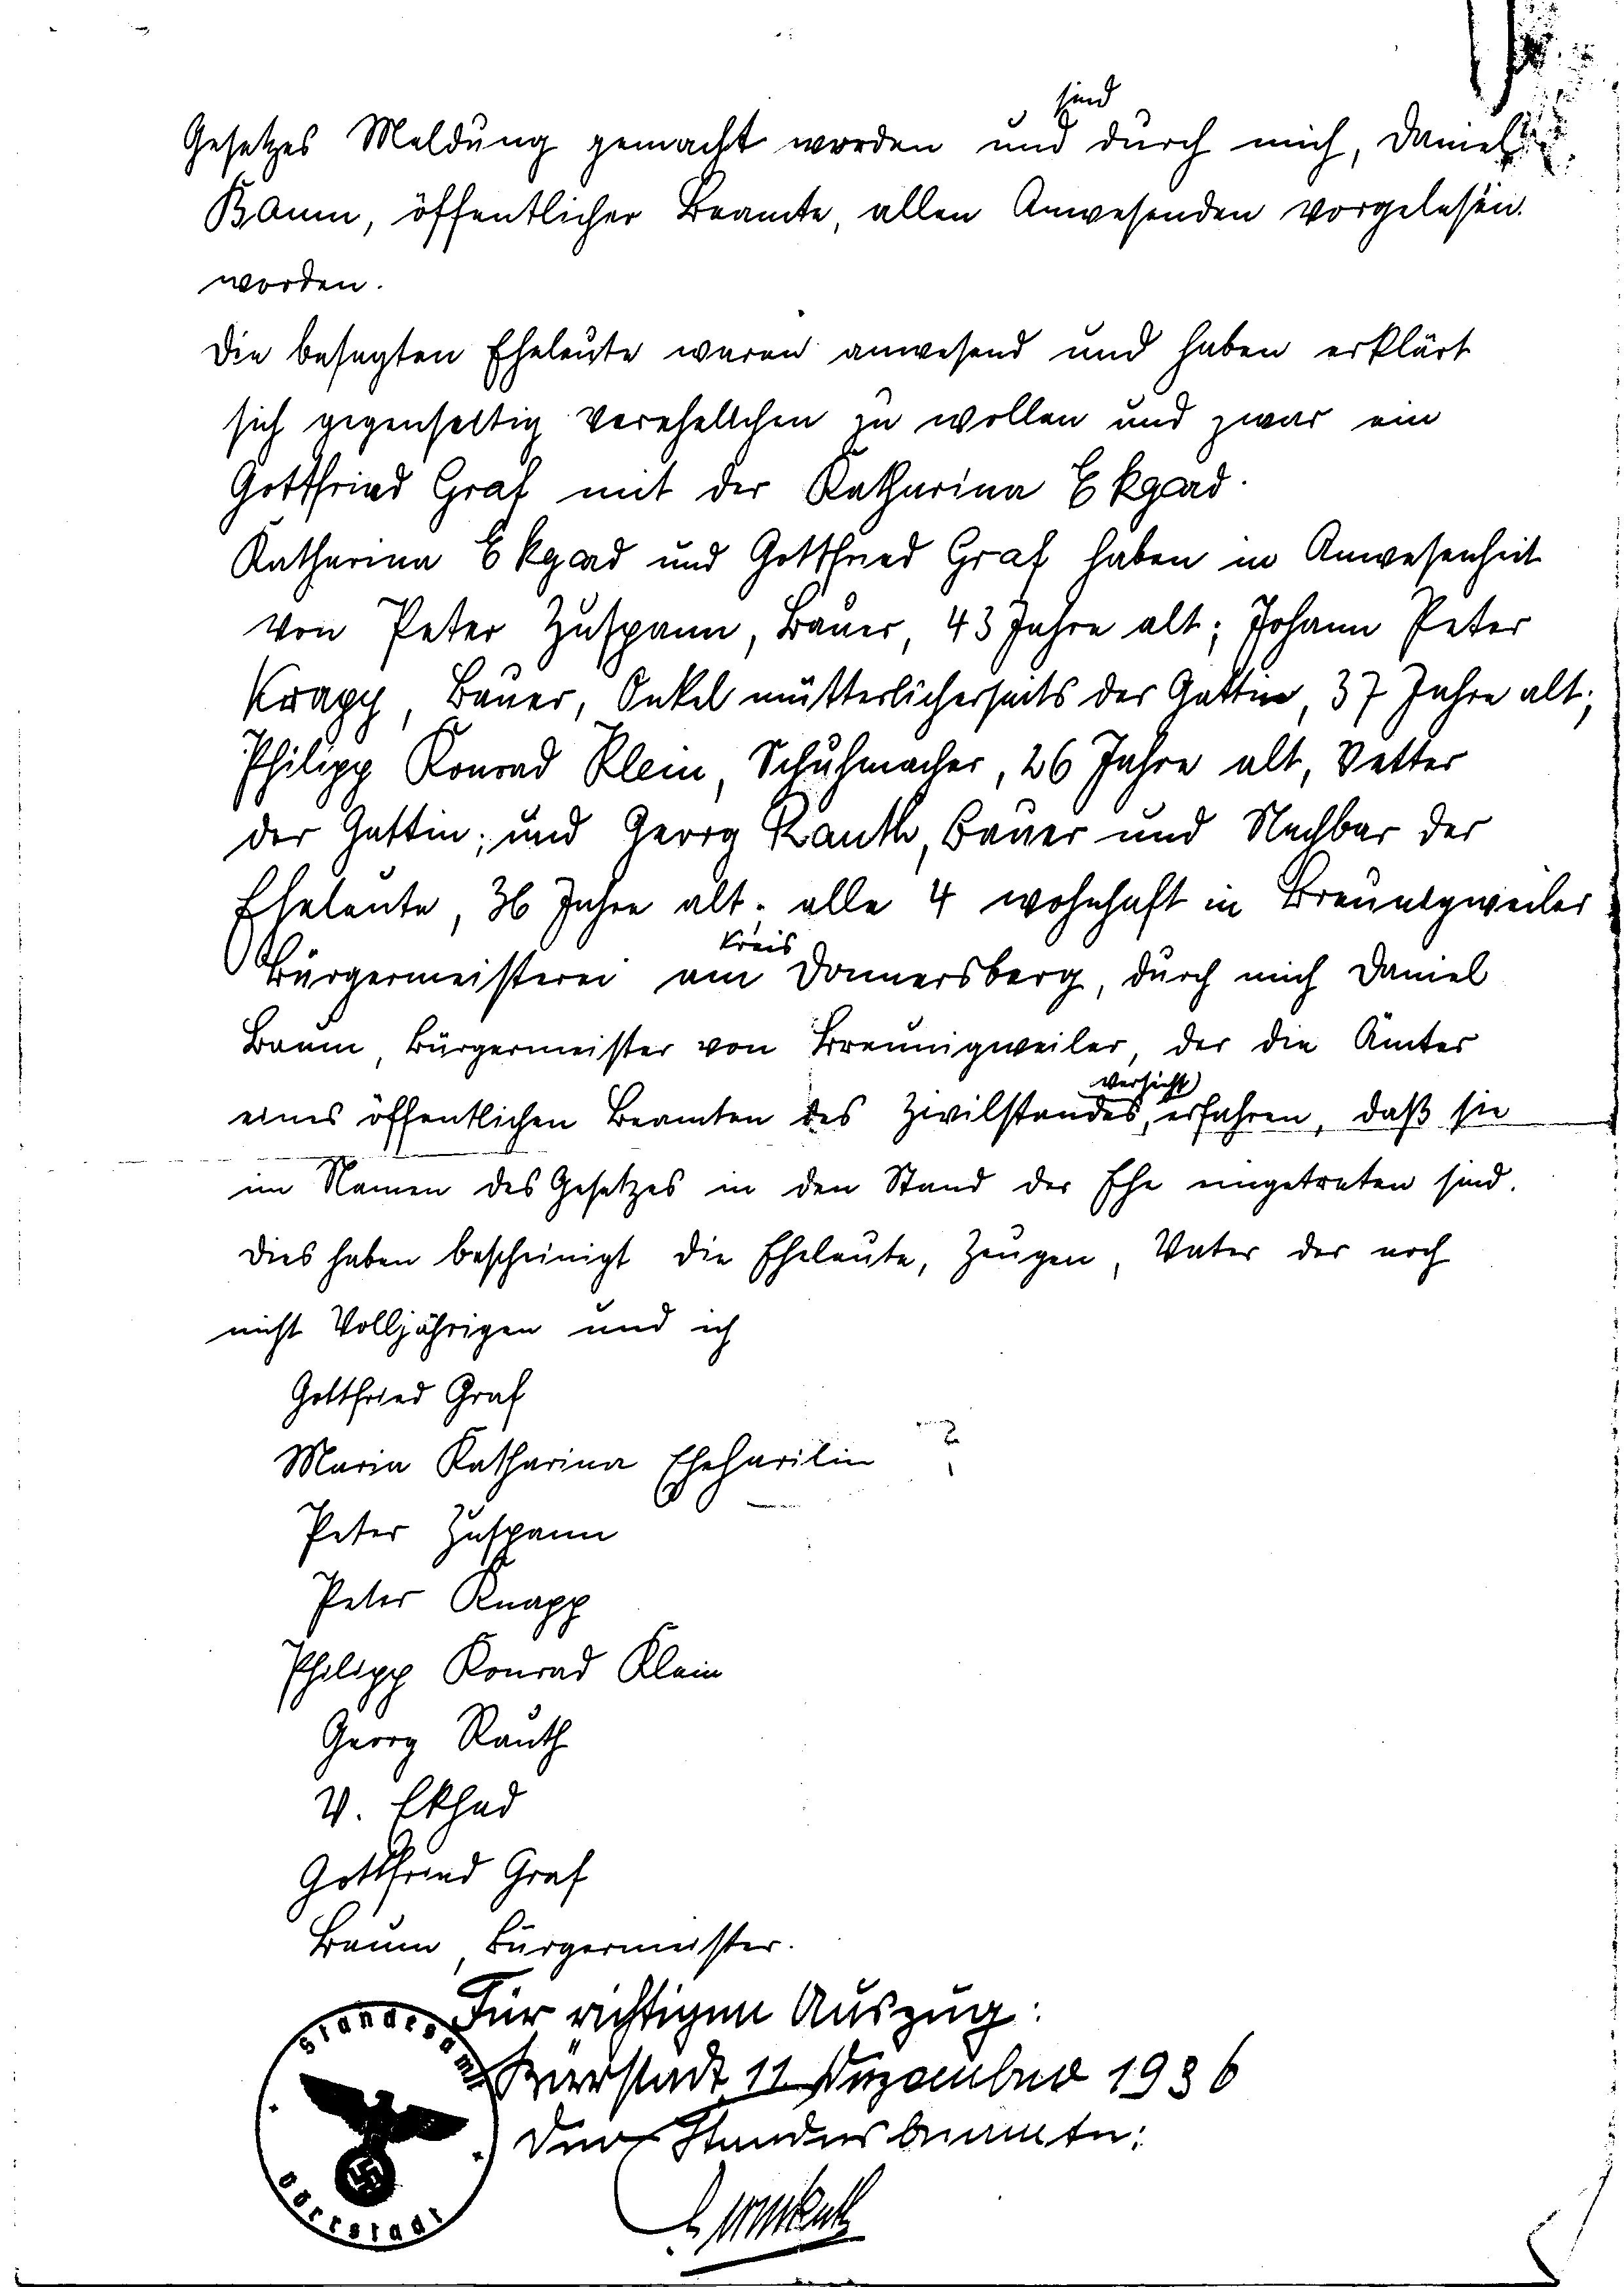 sind
Gesetzes Meldung gemacht worden und durch mich, Daniel
Baum, öffentlicher Beamte, allen Anwesenden vorgelesen
worden.
Die besagten Eheleute waren anwesend und haben erklärt
sich gegenseitig verehelichen zu wollen und zwar ein
Gottfried Graf mit der Katharina Ekgard.
Katharina Ekgard und Gottfried Graf haben in Anwesenheit
von Peter Zuspann, Bauer, 43 Jahre alt; Johann Peter
Knapp, Bauer, Onkel mütterlicherseits der Gattin, 37 Jahre alt;
Philipp Konrad Klein, Schuhmacher, 26 Jahre alt, Vetter
der Gattin; und Georg Rauth, Bauer und Nachbar der
Eheleute, 36 Jahre alt. alle 4 wohnhaft in Breunigweiler
Kreis
Bürgermeisterei am Donnersberg, durch mich Daniel
Baum, Bürgermeister von Breunigweiler, der die Ämter
versieht
eines öffentlichen Beamten des Zivilstandes, erfahren, daß sie
im Namen des Gesetzes in den Stand der Ehe eingetreten sind.
Dies haben bescheinigt die Eheleute, Zeugen, Vater der noch
nicht Volljährigen und ich
Gottfried Graf
Maria Katharina Eheharilin ?
Peter Zuspann
Peter Knapp
Philipp Konrad Klein
Georg Rauth
V. Ekhad
Gottfried Graf
Baum, Bürgermeister.
Für richtigen Auszug:
Börrstadt, 11. Dezember 1936
Der Standesbeamte:
Standesamt
Börrstadt